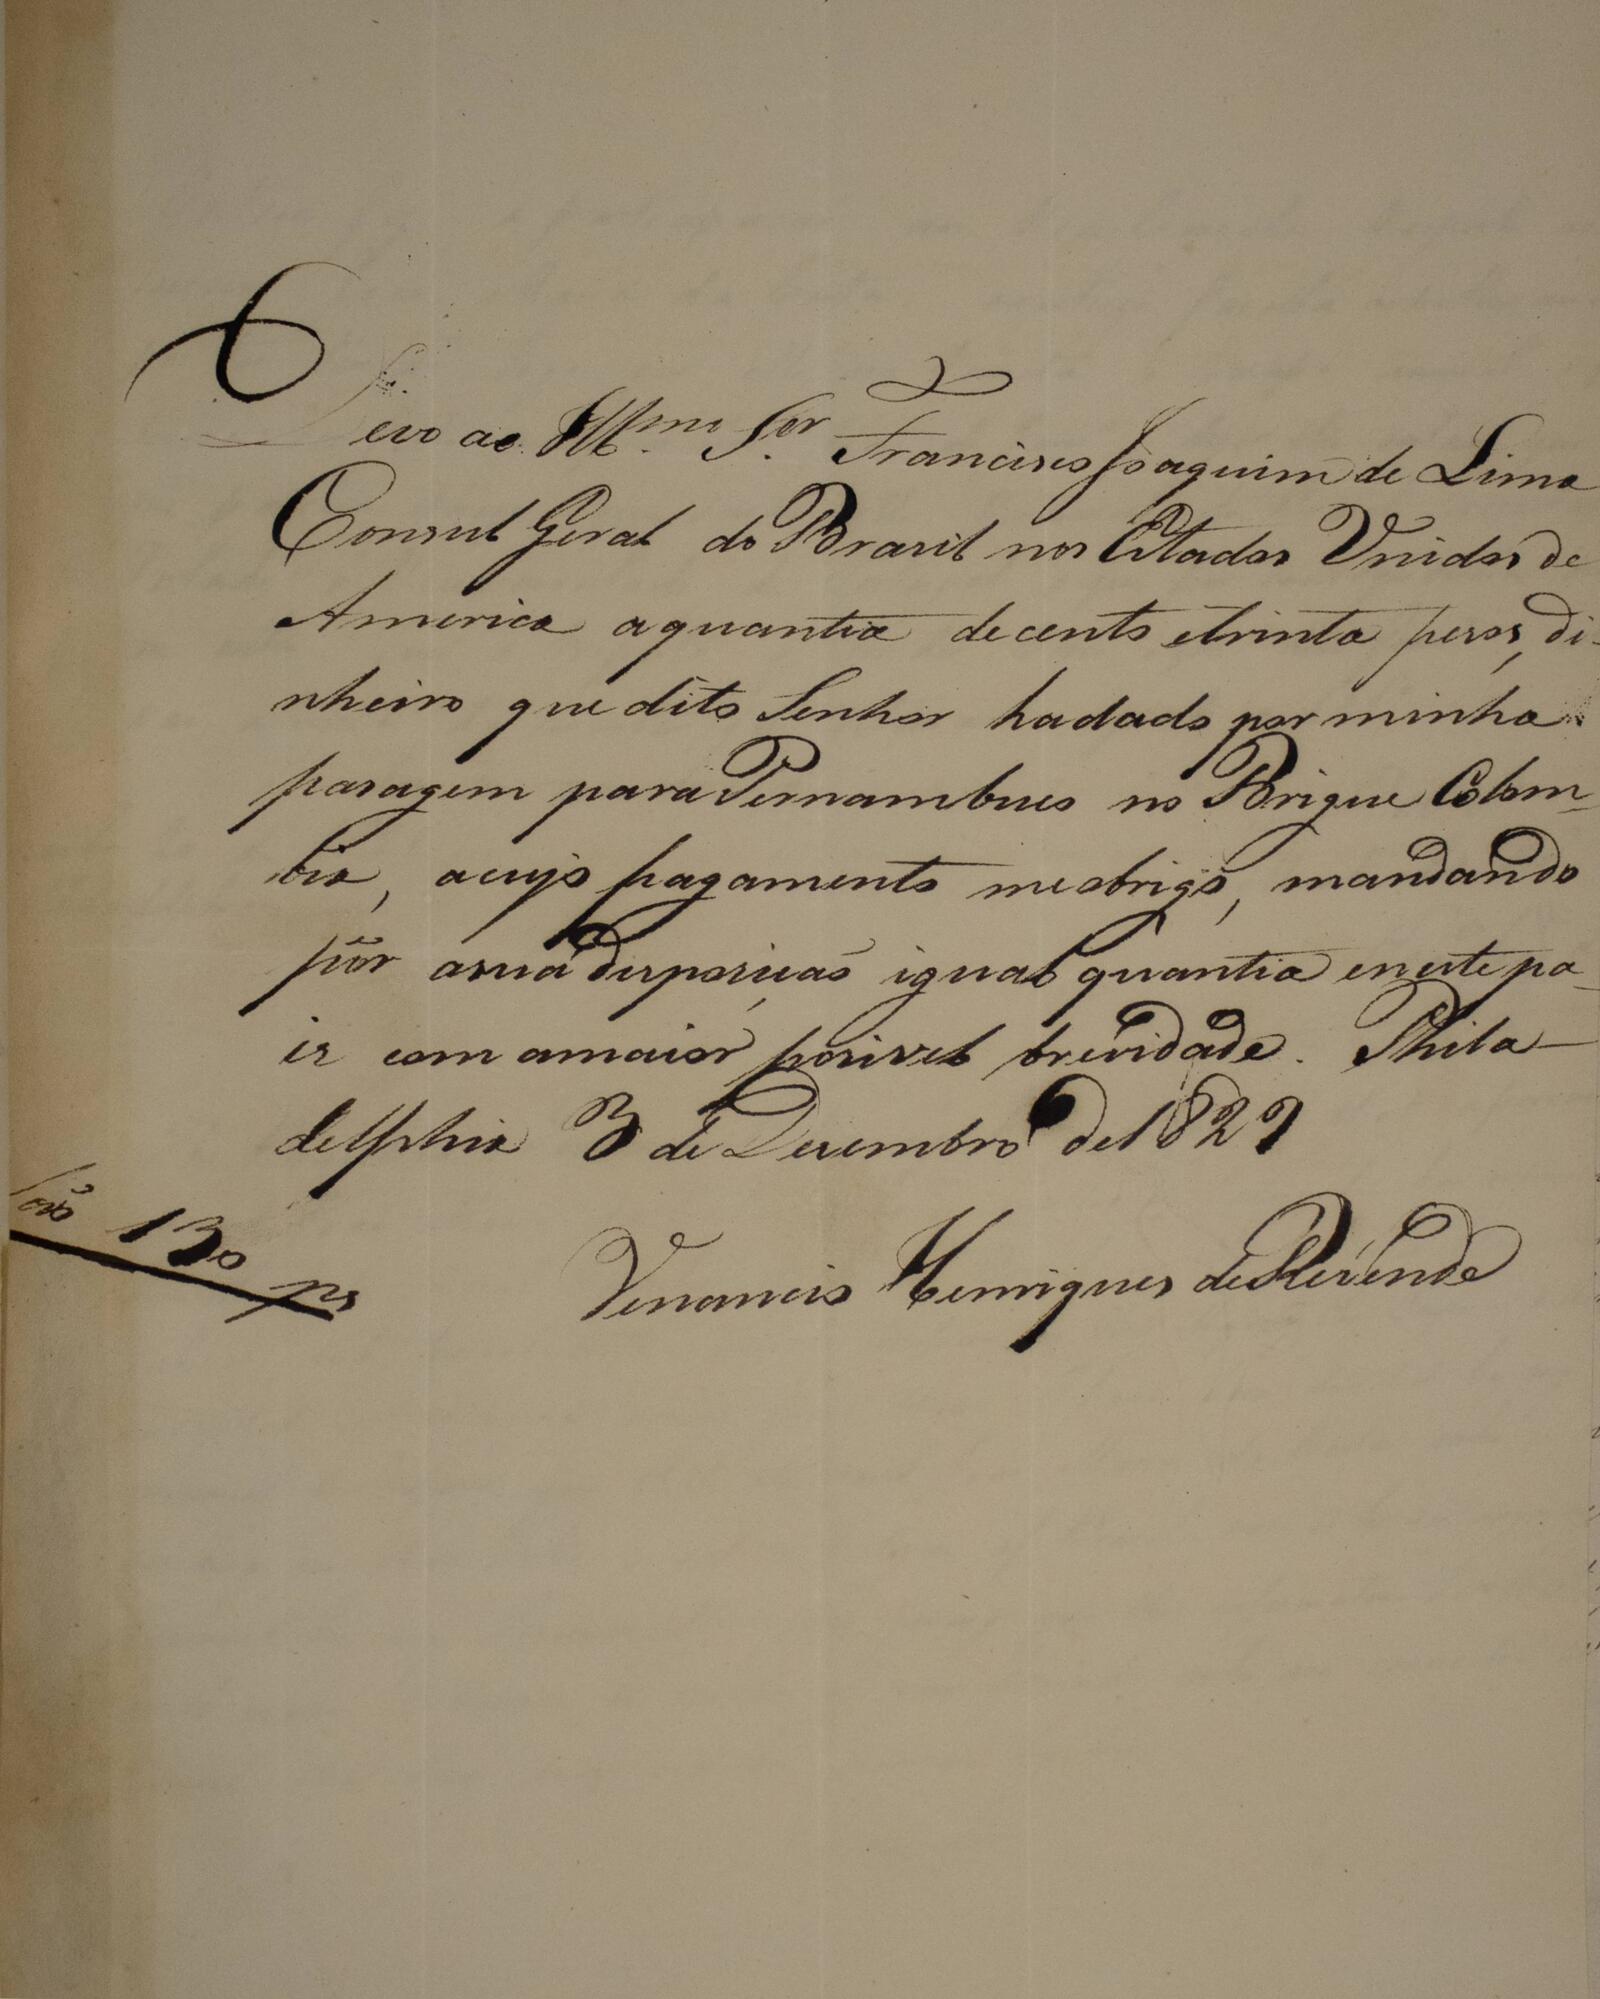 Devo ao Illmo Sor Francisco Joaquim de Lima
Consul Geral do Brasil nos Estados Unidos de
America aquantia de cento etrinta pesos, di-
nheiro que dito Senhor hadado por minha
pasagem para Pernambuco no Brigue Colom-
bia, acujo pagamento me obrigo, mandando
pôr asua dispozição igual quantia eneste pa-
is com amaior posivel brevidade. Phila-
delphia 3 de Dezembro de 1827
São 130 ps
Venancio Henriques de Rezende